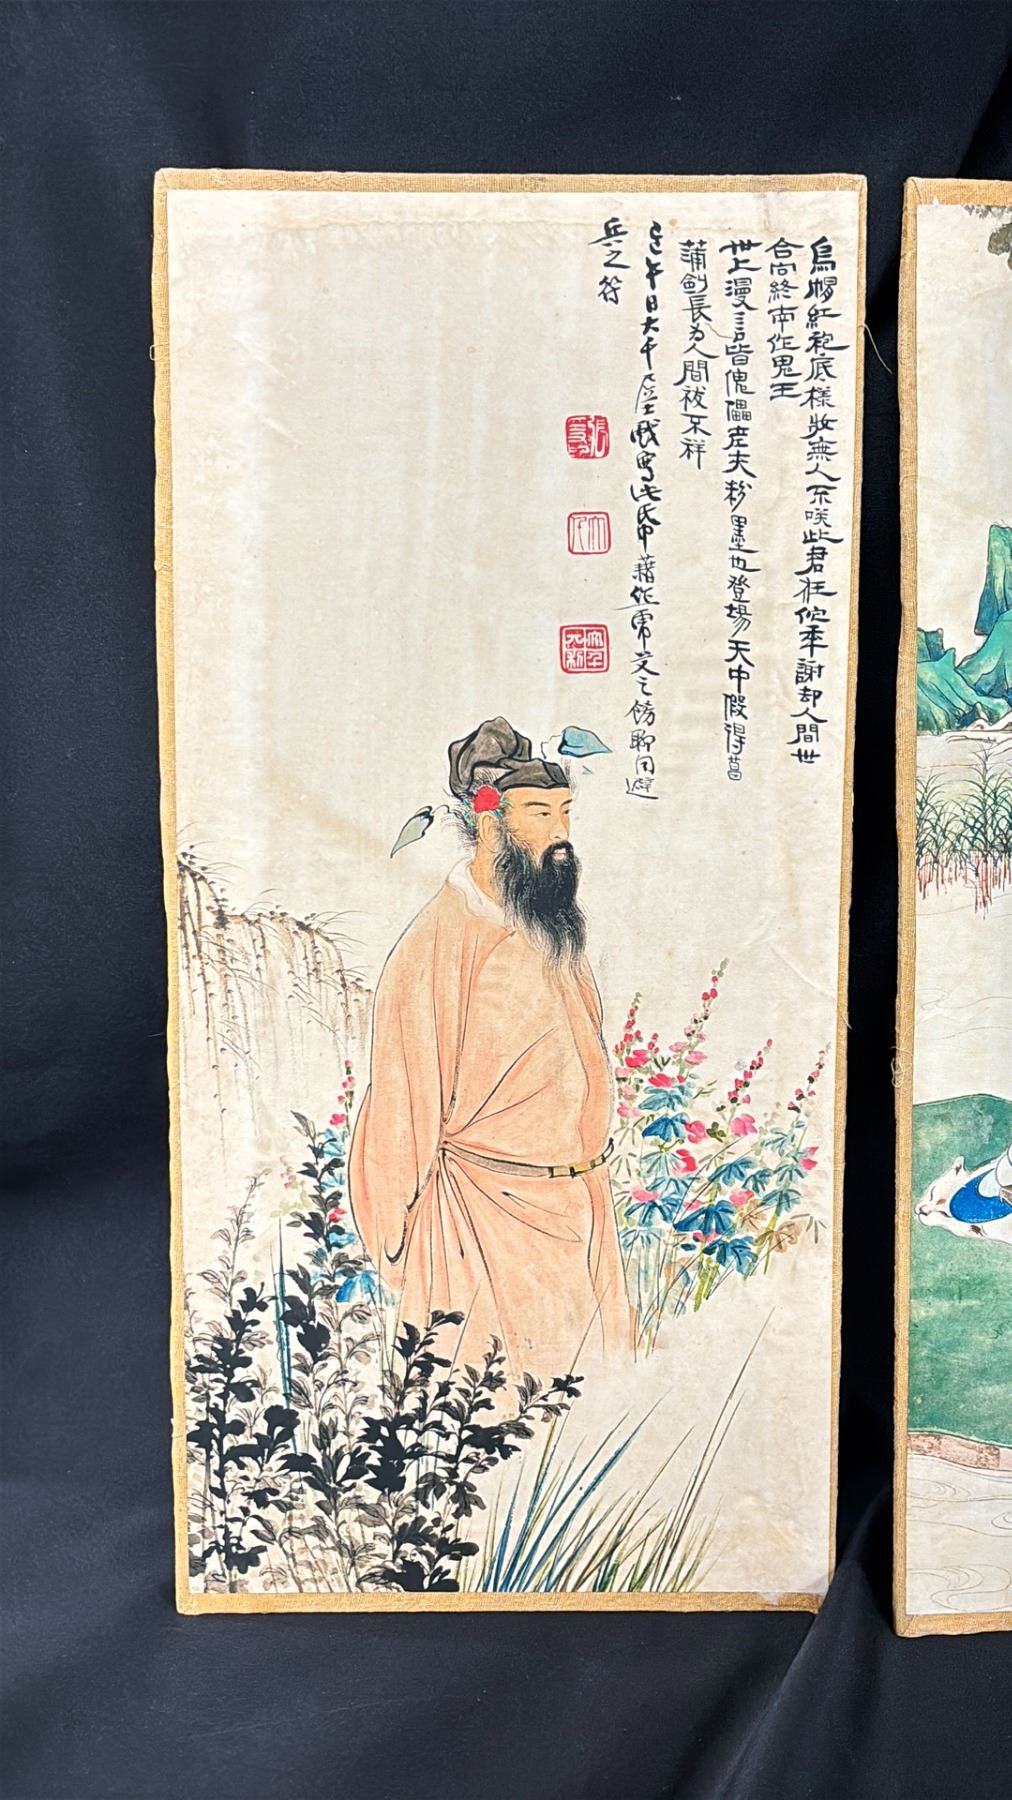 烏帽紅袍底樣妝無人不咲此君狂佗年謝却人間世
合向終南作鬼王
世上漫言皆傀儡老夫粉墨也登場天中假得菖
蒲劍長為人間祓不祥
午日大千居士戲寫此幀藉作
兵之符
張爰之印
大千